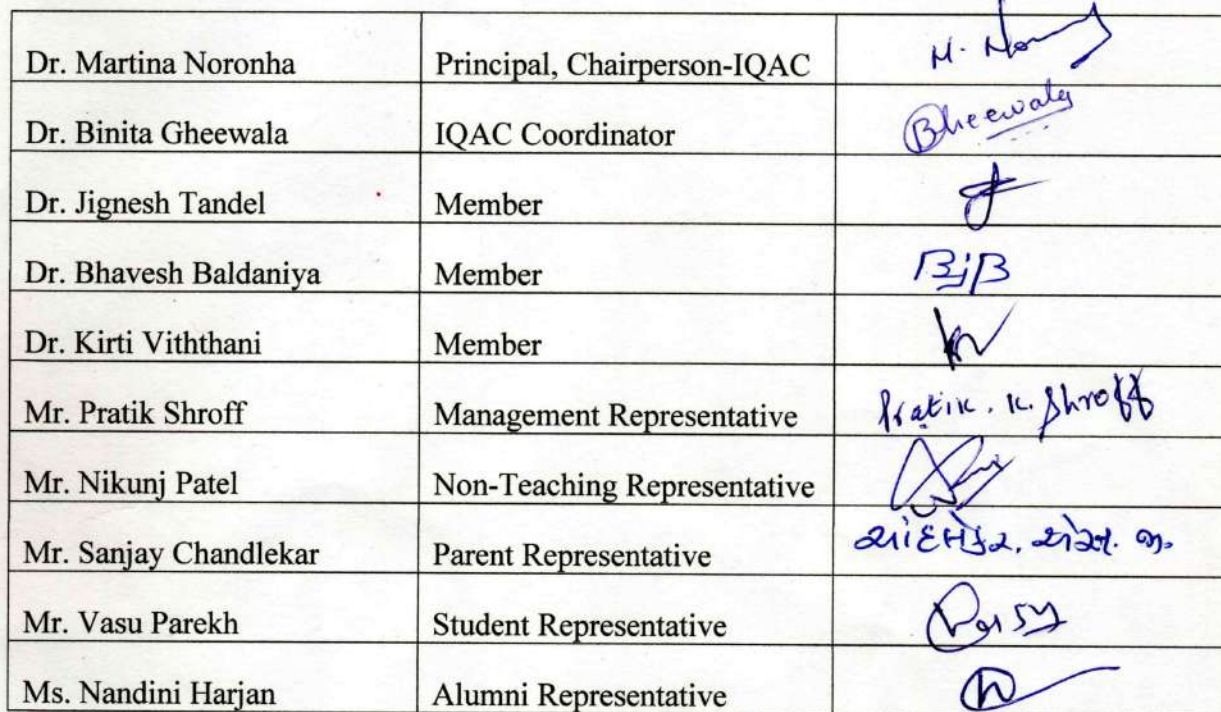 Dr. Martina Noronha Principal, Chairperson-IQAC
Dr. Binita Gheewala IQAC Coordinator Bheewala
Dr. Jignesh Tandel Member
Dr. Bhavesh Baldaniya Member BjB
Dr. Kirti Viththani Member
Mr. Pratik Shroff Management Representative Pratik. K. Shroff
Mr. Nikunj Patel Non-Teaching Representative
Mr. Sanjay Chandlekar Parent Representative
Mr. Vasu Parekh Student Representative
Ms. Nandini Harjan Alumni Representative